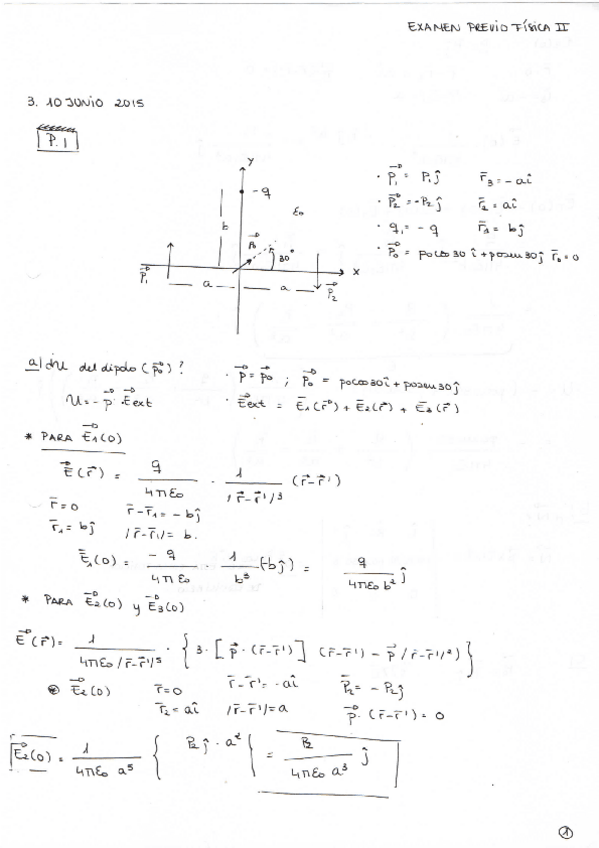 EXAMEN PREVIO FÍSICA II
3. 10 JUNIO 2015
P. 1
y
-q
b
ε₀
P⃗₀
30°
x
P⃗₁
a
a
P⃗₂
· P⃗₁ = P₁ĵ r̄₃ = -aî
· P⃗₂ = -P₂ĵ r̄₂ = aî
· q₁ = -q r̄₁ = bĵ
· P⃗₀ = p₀cos30 î + p₀sen30 ĵ r̄₀ = 0
a) ¿U del dipolo (p⃗₀)?
· p⃗ = p⃗₀ ; P⃗₀ = p₀cos30 î + p₀sen30 ĵ
U = -p⃗ · E⃗ext
· E⃗ext = E̅₁(r⃗) + E̅₂(r⃗) + E̅₃(r⃗)
* PARA E⃗₁(0)
E⃗(r⃗) = q/4πε₀ · 1/|r̄-r̄'|³ (r̄-r̄')
r̄ = 0 r̄-r̄₁ = -bĵ
r̄₁ = bĵ |r̄-r̄₁| = b.
E̅₁(0) = -q/4πε₀ 1/b³ (-bĵ) = q/4πε₀b² ĵ
* PARA E̅₂(0) y E̅₃(0)
E⃗(r⃗) = 1/4πε₀|r̄-r̄'|⁵ · { 3·[p⃗·(r̄-r̄')] (r̄-r̄') - p⃗|r̄-r̄'|²) }
E⃗₂(0) r̄ = 0 r̄-r̄' = -aî P̅₂ = -P₂ĵ
r̄₂ = aî |r̄-r̄'| = a p⃗·(r̄-r̄') = 0
E⃗₂(0) = 1/4πε₀ a⁵ { P₂ĵ · a² } = P₂/4πε₀ a³ ĵ
1